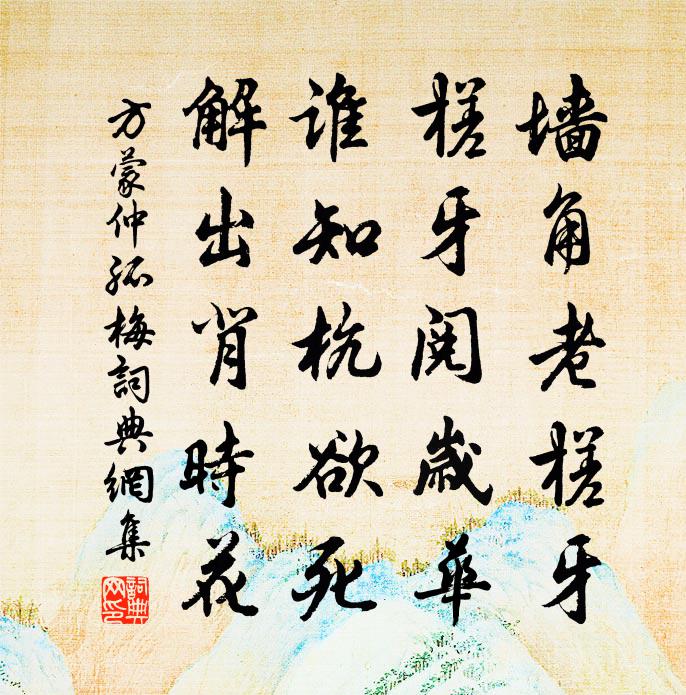 墙角老槎牙
槎牙阅岁华
谁知杭欲死
解出背时花
方蒙仲孤梅詞典網集
詞典網印